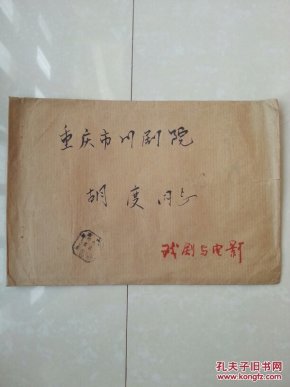 重庆市川剧院
胡度同志
戏剧与电影
孔夫子旧书网